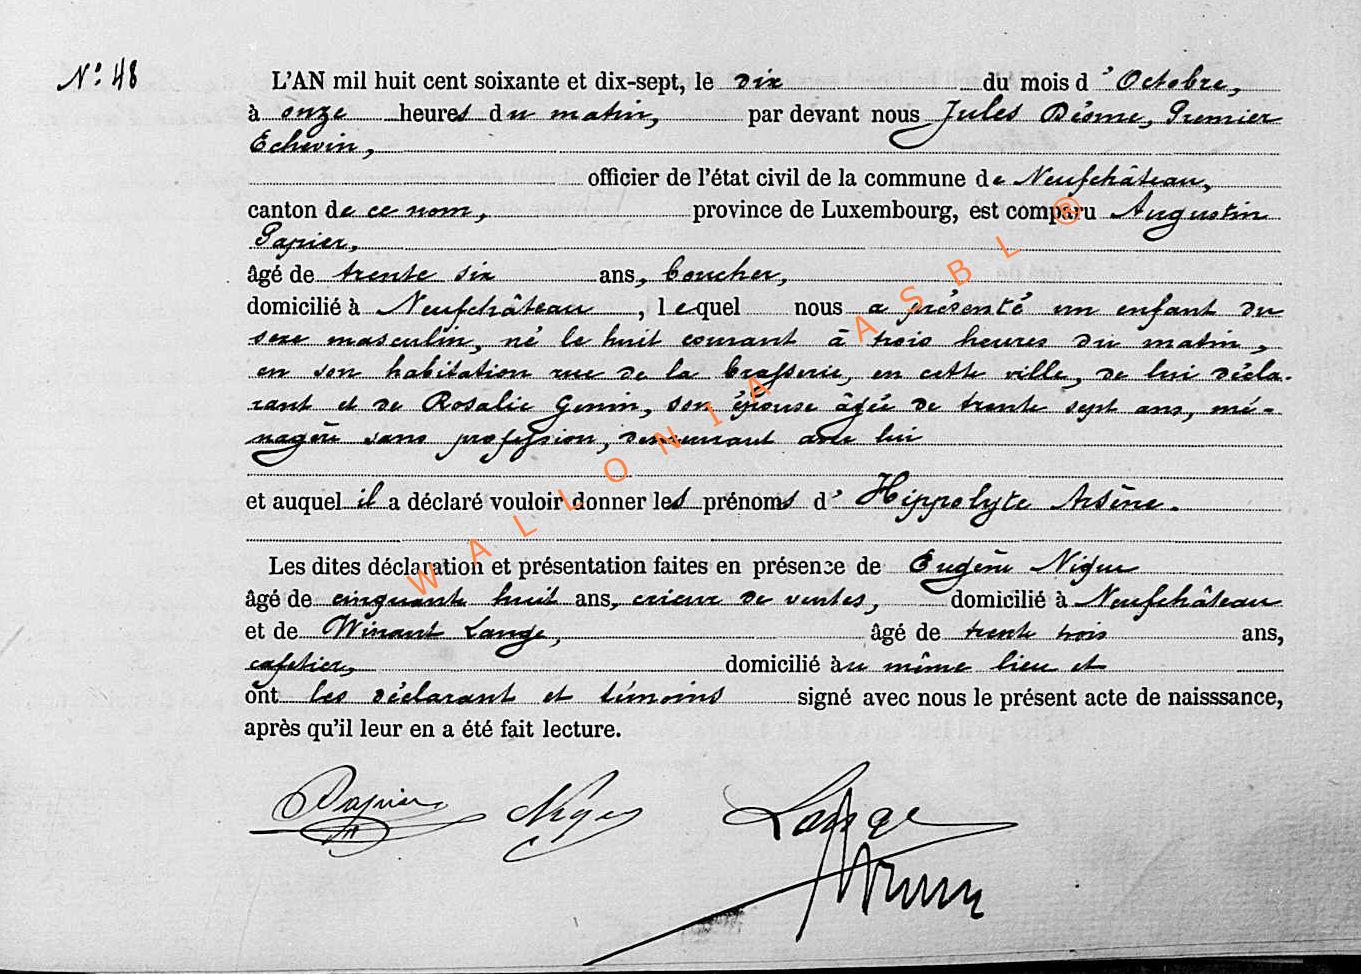 N° 48
L'AN mil huit cent soixante et dix-sept, le dix du mois d'Octobre,
à onze heures du matin, par devant nous Jules Désme, Premier
Echevin,
officier de l'état civil de la commune de Neufchâteau,
canton de ce nom, province de Luxembourg, est comparu Augustin
Papier,
âgé de trente six ans, boucher,
domicilié à Neufchâteau, lequel nous a présenté un enfant du
sexe masculin, né le huit courant à trois heures du matin,
en son habitation rue de la brasserie, en cette ville, de lui décla-
rant et de Rosalie Genin, son épouse âgée de trente sept ans, mé-
nagère sans profession, demeurant avec lui
et auquel il a déclaré vouloir donner les prénoms d'Hippolyte Arsène.
Les dites déclaration et présentation faites en présence de Eugène Nigue
âgé de cinquante huit ans, crieur de ventes, domicilié à Neufchâteau
et de Winant Lange, âgé de trente trois ans,
cafetier, domicilié àu même lieu et
ont les déclarant et témoins signé avec nous le présent acte de naisssance,
après qu'il leur en a été fait lecture.
Papier Lange
WALLONIA ASBL ®